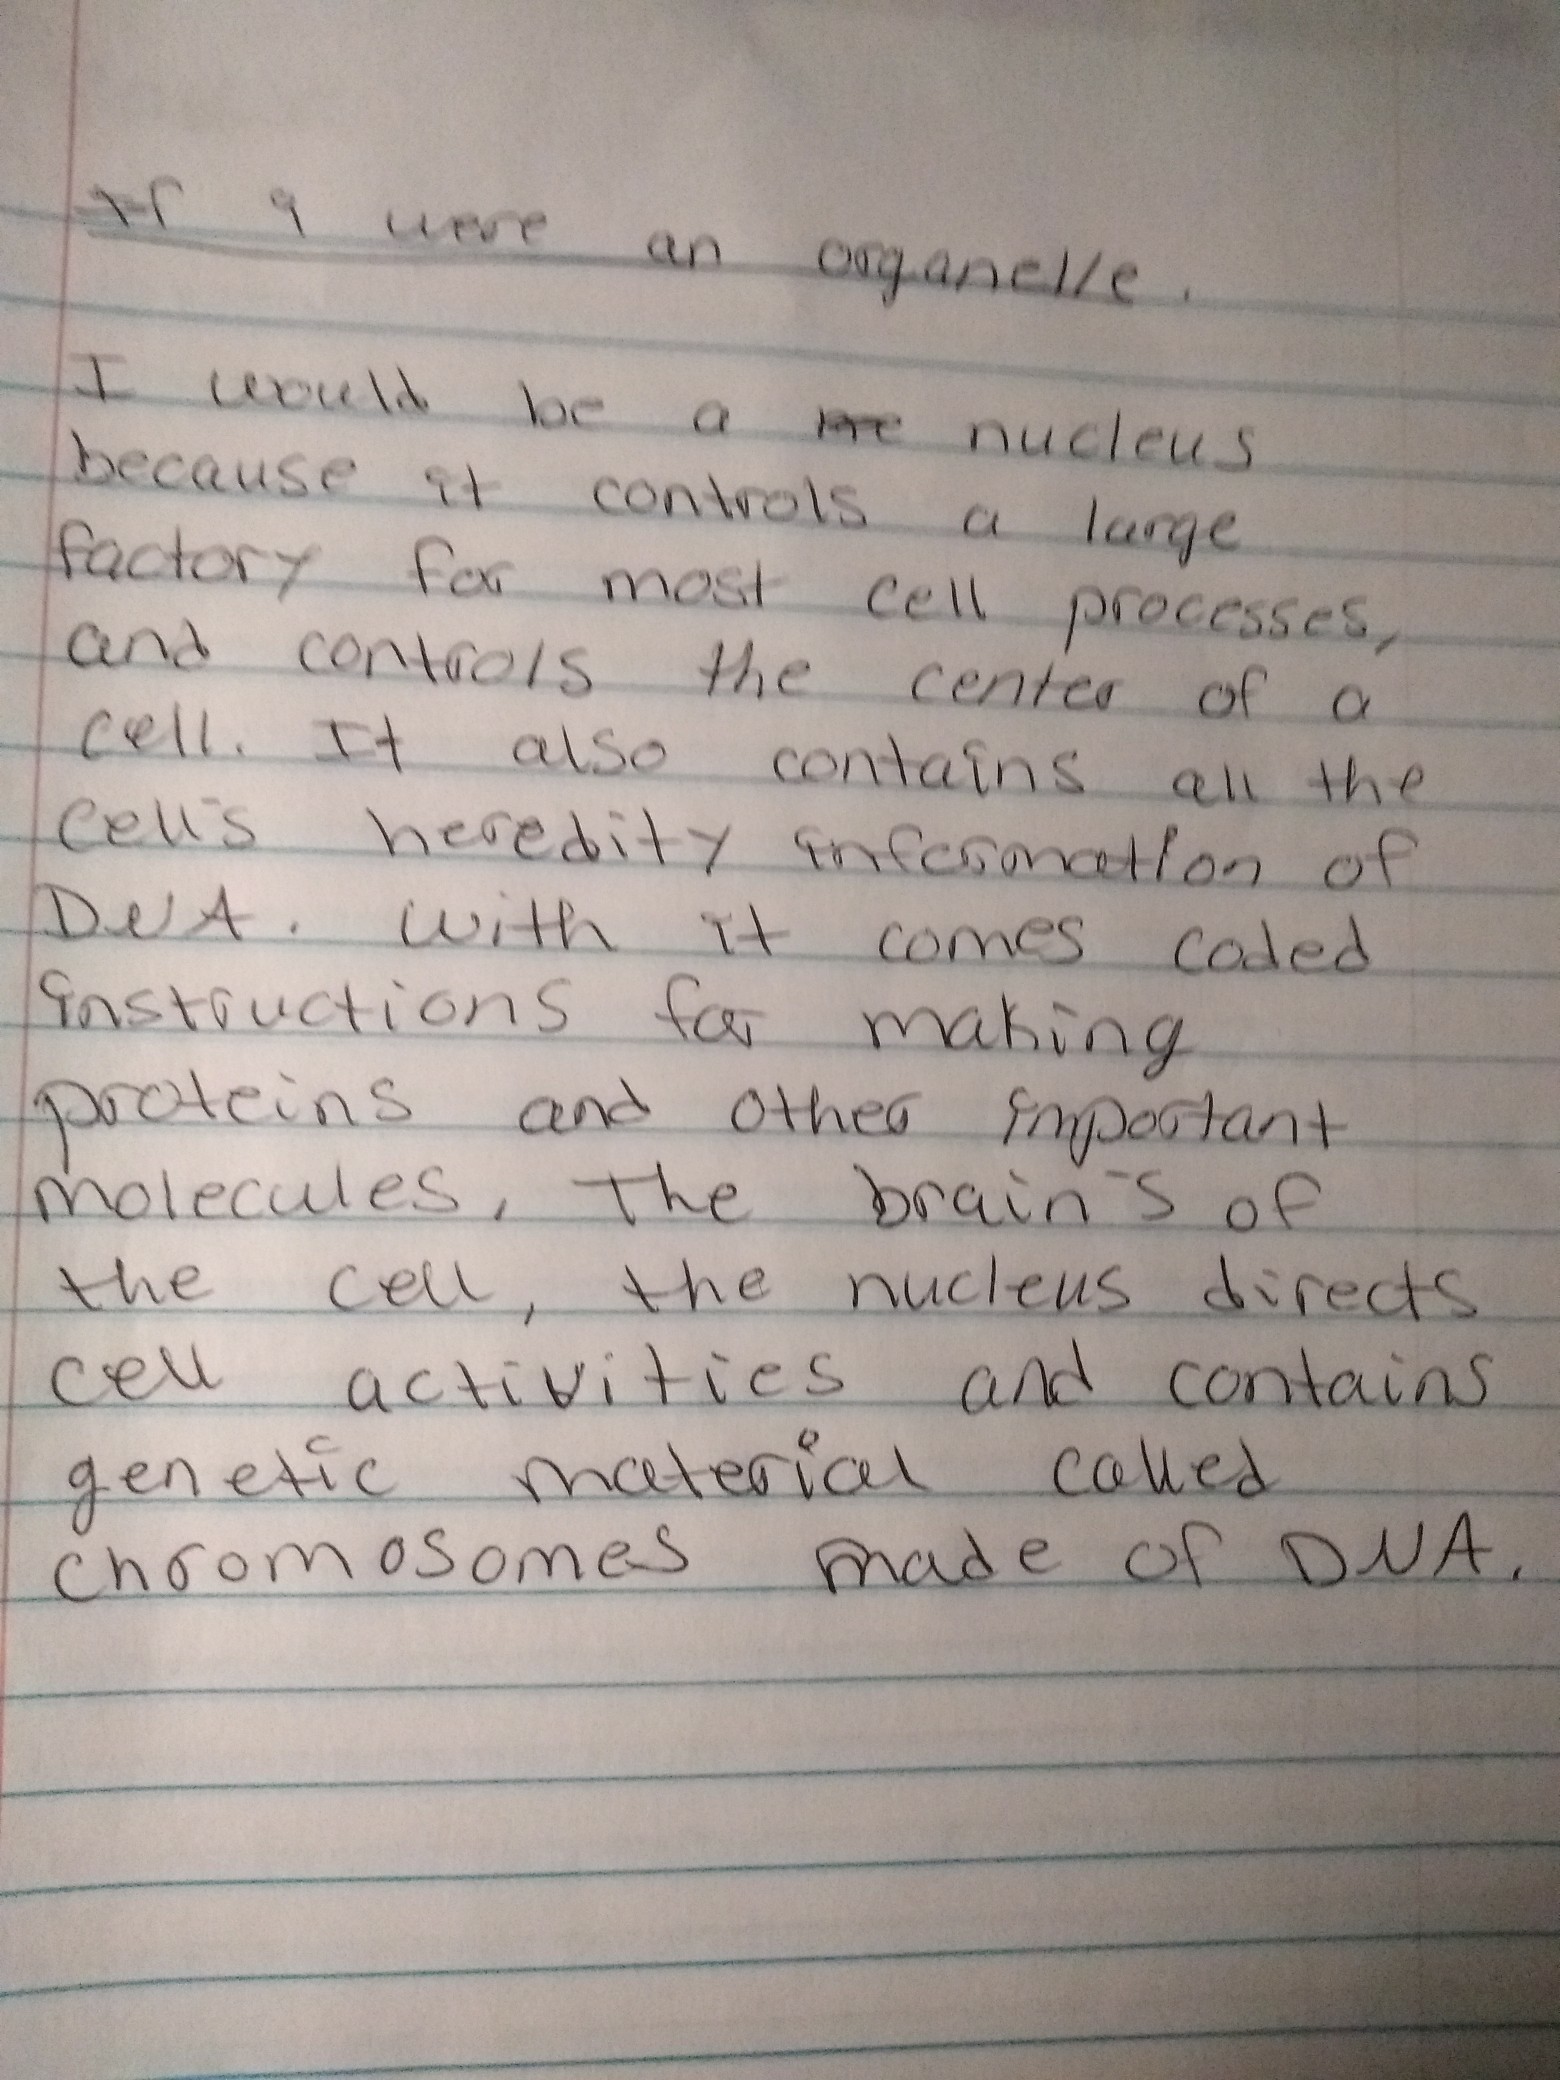 If i were an organelle.
I would be a nucleus
because it controls a large
factory for most cell processes,
and controls the center of a
cell. It also contains all the
cell's heredity information of
DNA. With it comes coded
instructions for making
proteins and other important
molecules, The brain's of
the cell, the nucleus directs
cell activities and contains
genetic material called
chromosomes made of DNA.